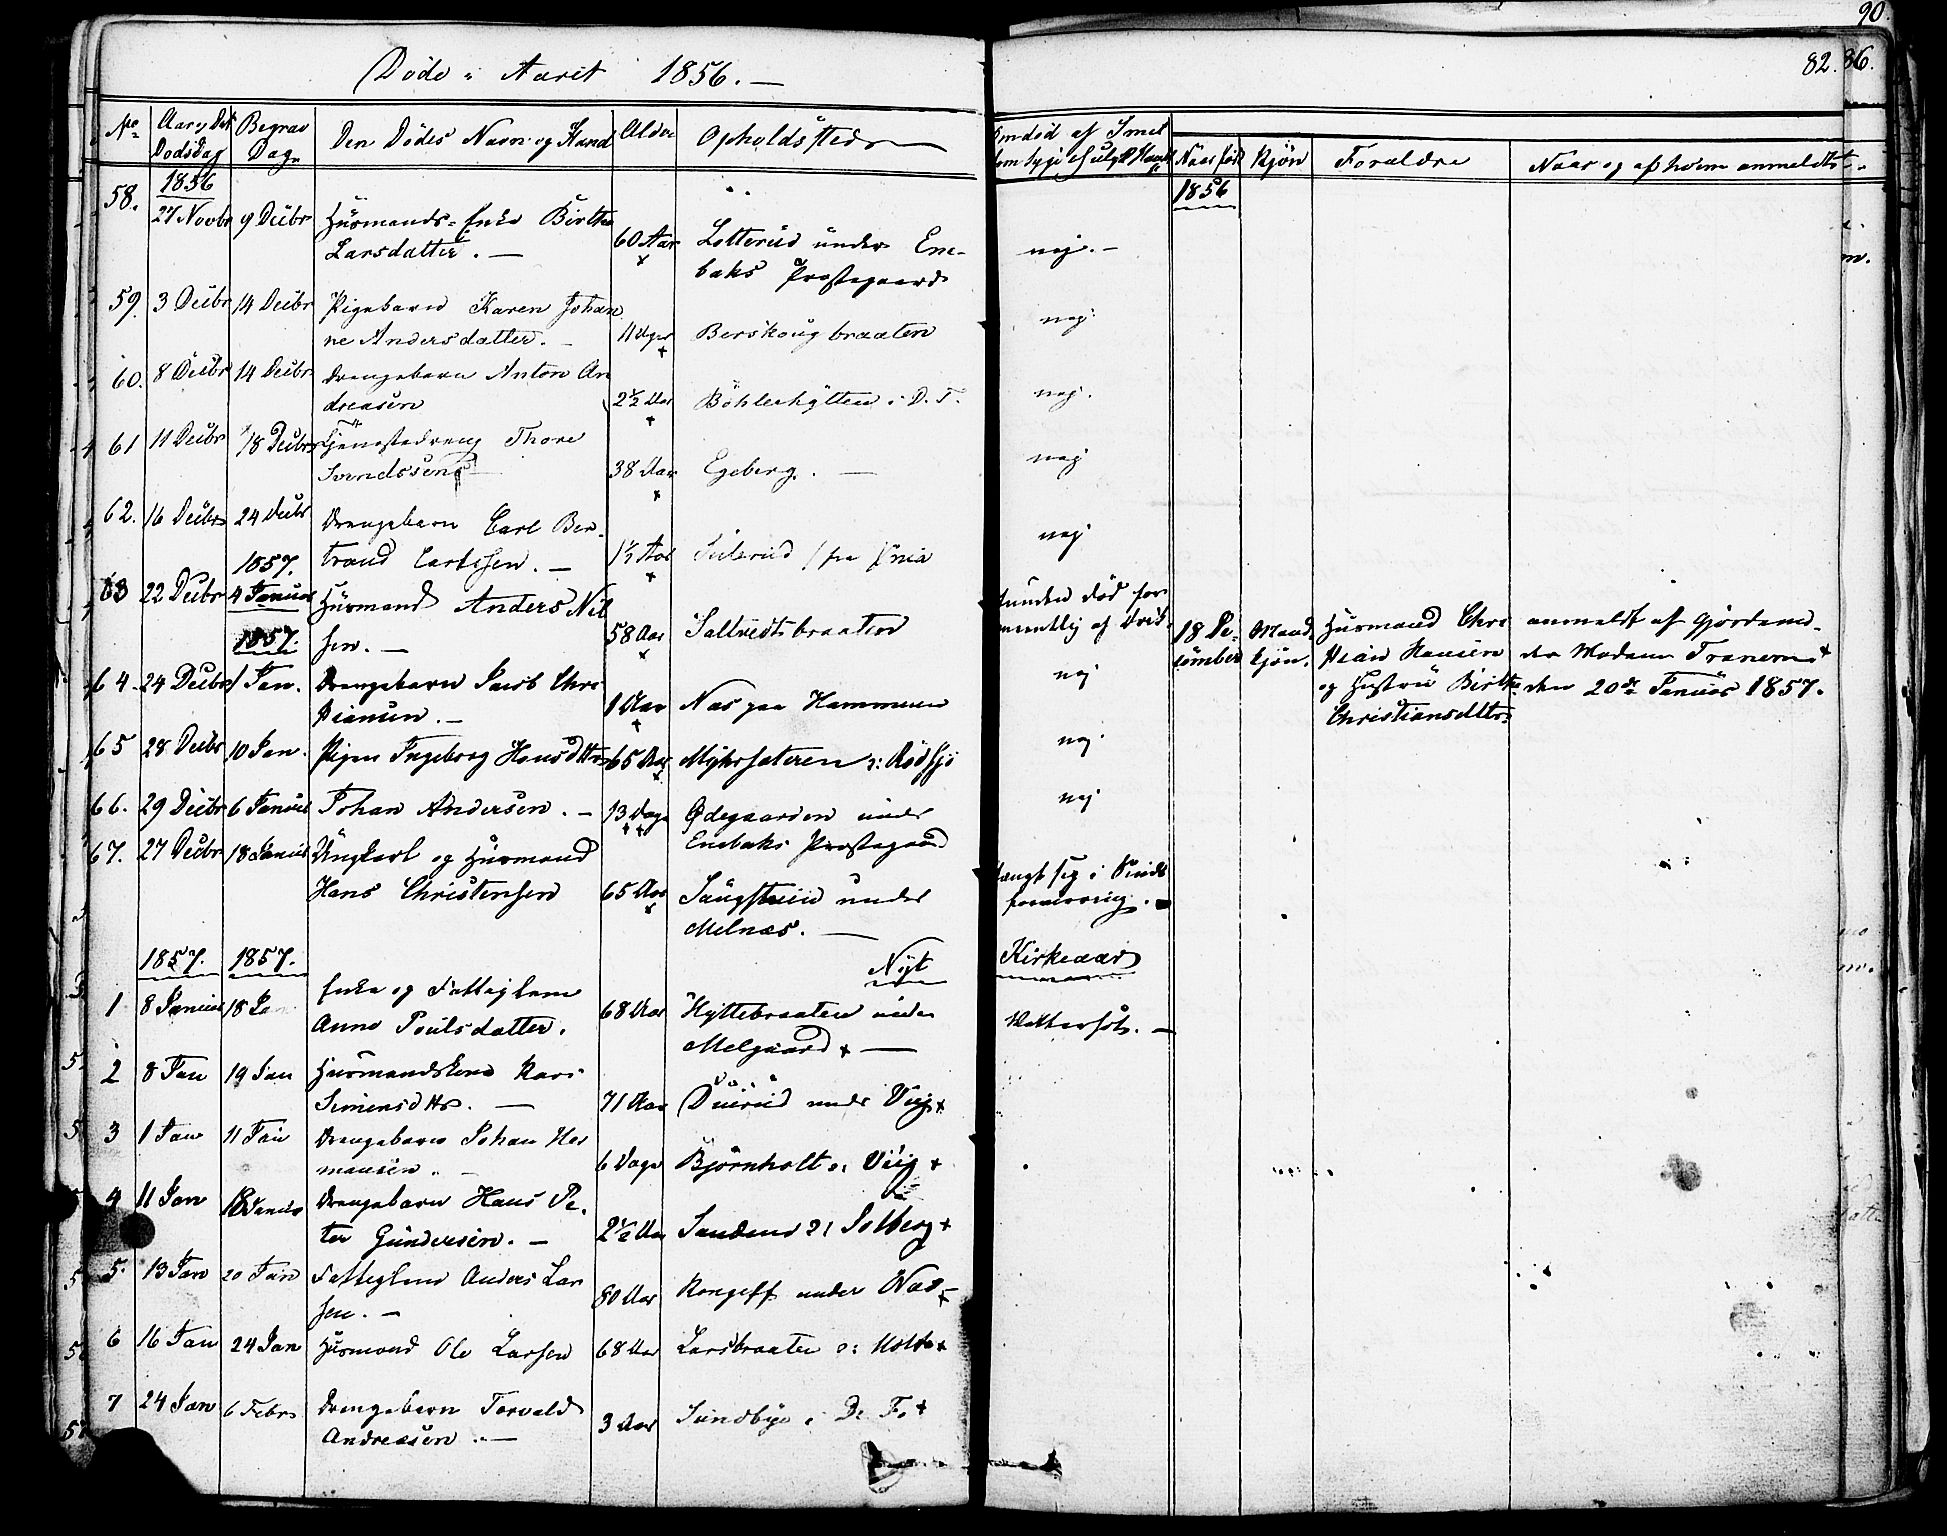 90
82. 86.
Döde i Aaret 1856. —
No
Aar og Dat
Dodsdag
Begrav
Dag
Den Dödes Navn og Stand
Alder
Opholdssted
Naar föd
Kjön
Forældre
Naar og af hvem anmeldt
1856
1856
58. 27 Novbr 9 Decbr Huusmands-Enke Birthe
Larsdatter. — 60 Aar Lotterud under Ene-
baks Præstegaard nej. —
59. 3 Decbr 14 Decbr Pigebarn Karen Johan
ne Andersdatter. — 11 Dage Berskougbraaten nej
60. 8 Decbr 14 Decbr Drengebarn Anton An
dreasen 2½ Aar Böhlerhytten i D. F. nej.
61 11 Decbr 18 Decbr Tjenestedreng Thore
Svendssen 38 Aar Egeberg. — nej
62. 16 Decbr 24 Decbr Drengebarn Carl Ber-
trand Carlssen. — 1½ Aar nej
1857.
63 22 Decbr 4 Januar Huusmand Anders Nil
sen. — 58 Aar Sollvedtbraaten
funden död for
mentlig af Drik.
18 De-
cember
Mand-
kjön.
Huusmand Chri
stian Hansen
og Hustru Birthe
Christiansdttr.
anmeldt af Gjordemo-
der Madam Tranem
den 20de Januar 1857.
1857.
64. 24 Decbr 1 Jan. Drengebarn Jacob Chri
stiansen. — 1 Aar Næs paa Hammeren nej
65 28 Decbr 10 Jan. Pigen Ingeborg Hansdttr 65 Aar Myhrsæteren u: Rödsjö nej.
66. 29 Decbr 6 Januar Johan Andersen. — 13 Dage Ödegaarden under
Enebaks Præstegaard nej
67. 27 Decbr 18 Januar Ungkarl og Huusmand
Hans Christensen 65 Aar under
Melnæs. —
hængt sig i Sinds
forvirring. —
1857. 1857. Nyt Kirkeaar
1 8 Januar 18 Jan Enke og Fattiglem
Anne Poulsdatter. 68 Aar Hyttebraaten under
Melgaard — Vattersot. —
2 8 Jan 19 Jan Huusmandskone Kari
Simensdttr. — 71 Aar Duerud under Viig
3 1 Jan 11 Jan Drengebarn Johan Her
mansen. — 6 Dage Björnholt u: Viig
4 11 Jan 18 Januar Drengebarn Hans Pe-
ter Gundersen. — 2½ Aar Sanden u: Solberg
5. 13 Jan 20 Jan Fattiglem Anders Lar
sen. — 80 Aar under Næs
6 16 Jan 24 Jan Huusmand Ole Larsen 68 Aar Larsbraaten u: Holt
7 24 Jan 6 Febr Drengebarn Torvald
Andreasen. — 3 Aar Sundbye i D. F.